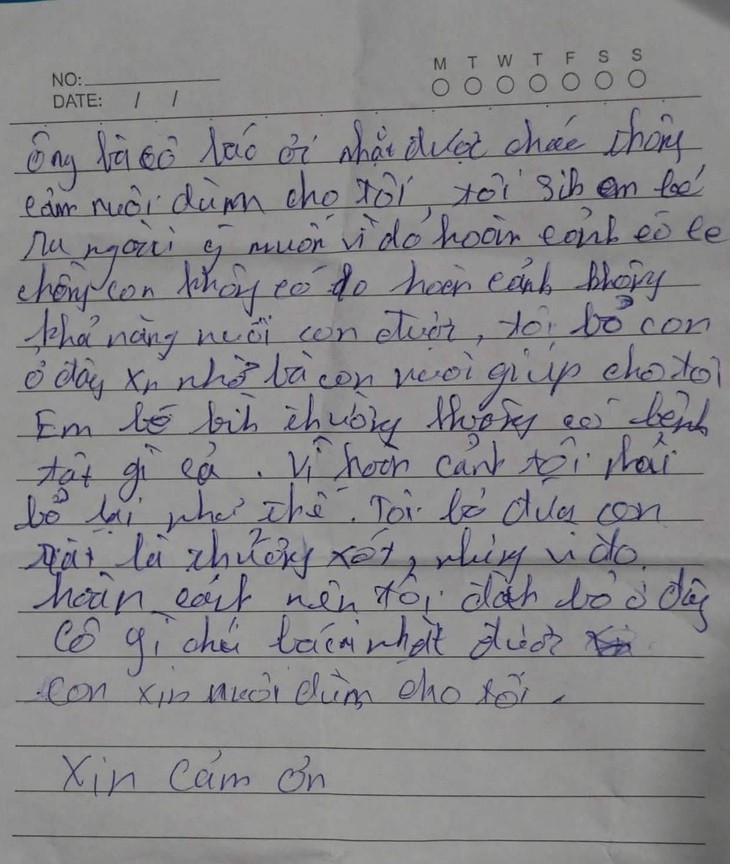 M T W T F S S
NO:
DATE: / /
Ông bà cô bác ơi nhặt được cháu thông
cảm nuôi dùm cho tôi, tôi sih em bé
ngoài ý muốn vì do hoàn cảnh
chồng con không có do hoàn cảnh không
khả năng nuôi con được, tôi bỏ con
ở đây xn nhờ bà con nuôi giúp cho tôi
Em bé bìh thường không có bệnh
tật gì cả. Vì hoàn cảnh tôi phải
bỏ lại như thế. Tôi bỏ đứa con
rất là thương xót, nhưng vì do
hoàn cảnh nên tôi đàh bỏ ở đây
Cô gì chú bác nhặt được
con xin nuôi dùm cho tôi.
Xin Cám ơn